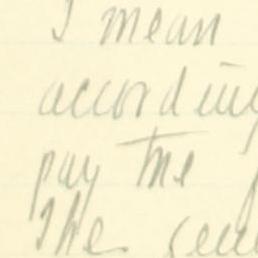 I mean
accordin
pay the
The